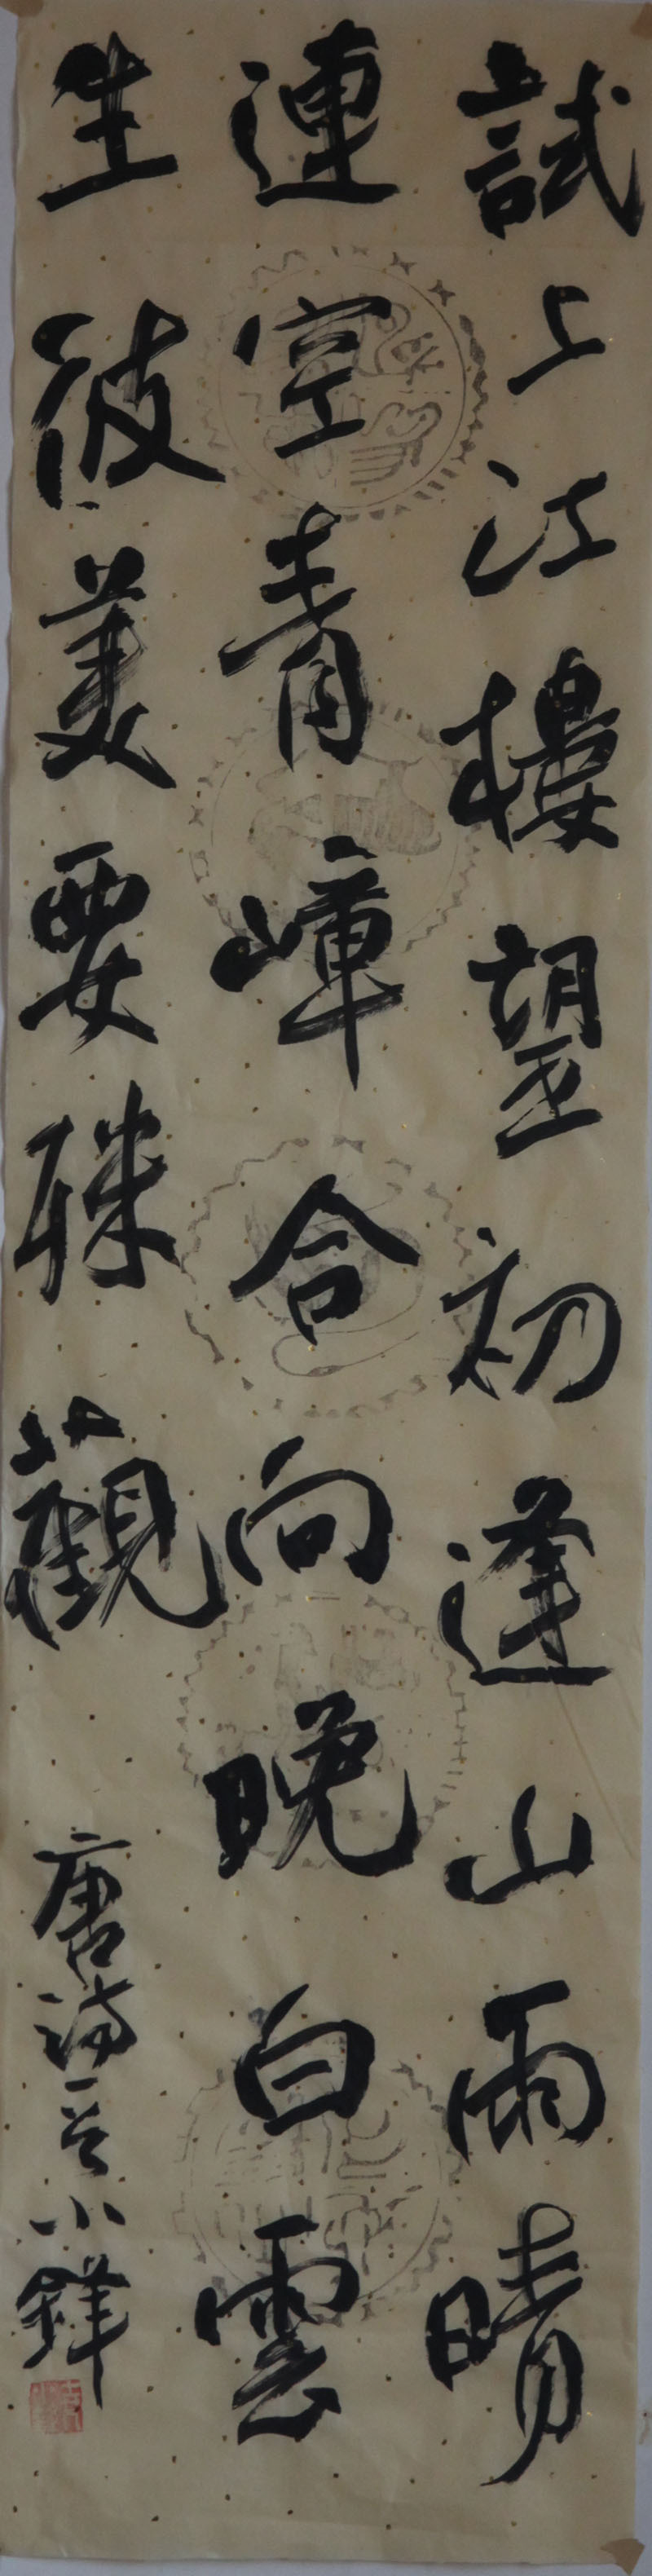 試上江樓望初逢山雨晴
連空青嶂合向晚白雲
生彼美要殊觀 唐詩一首小